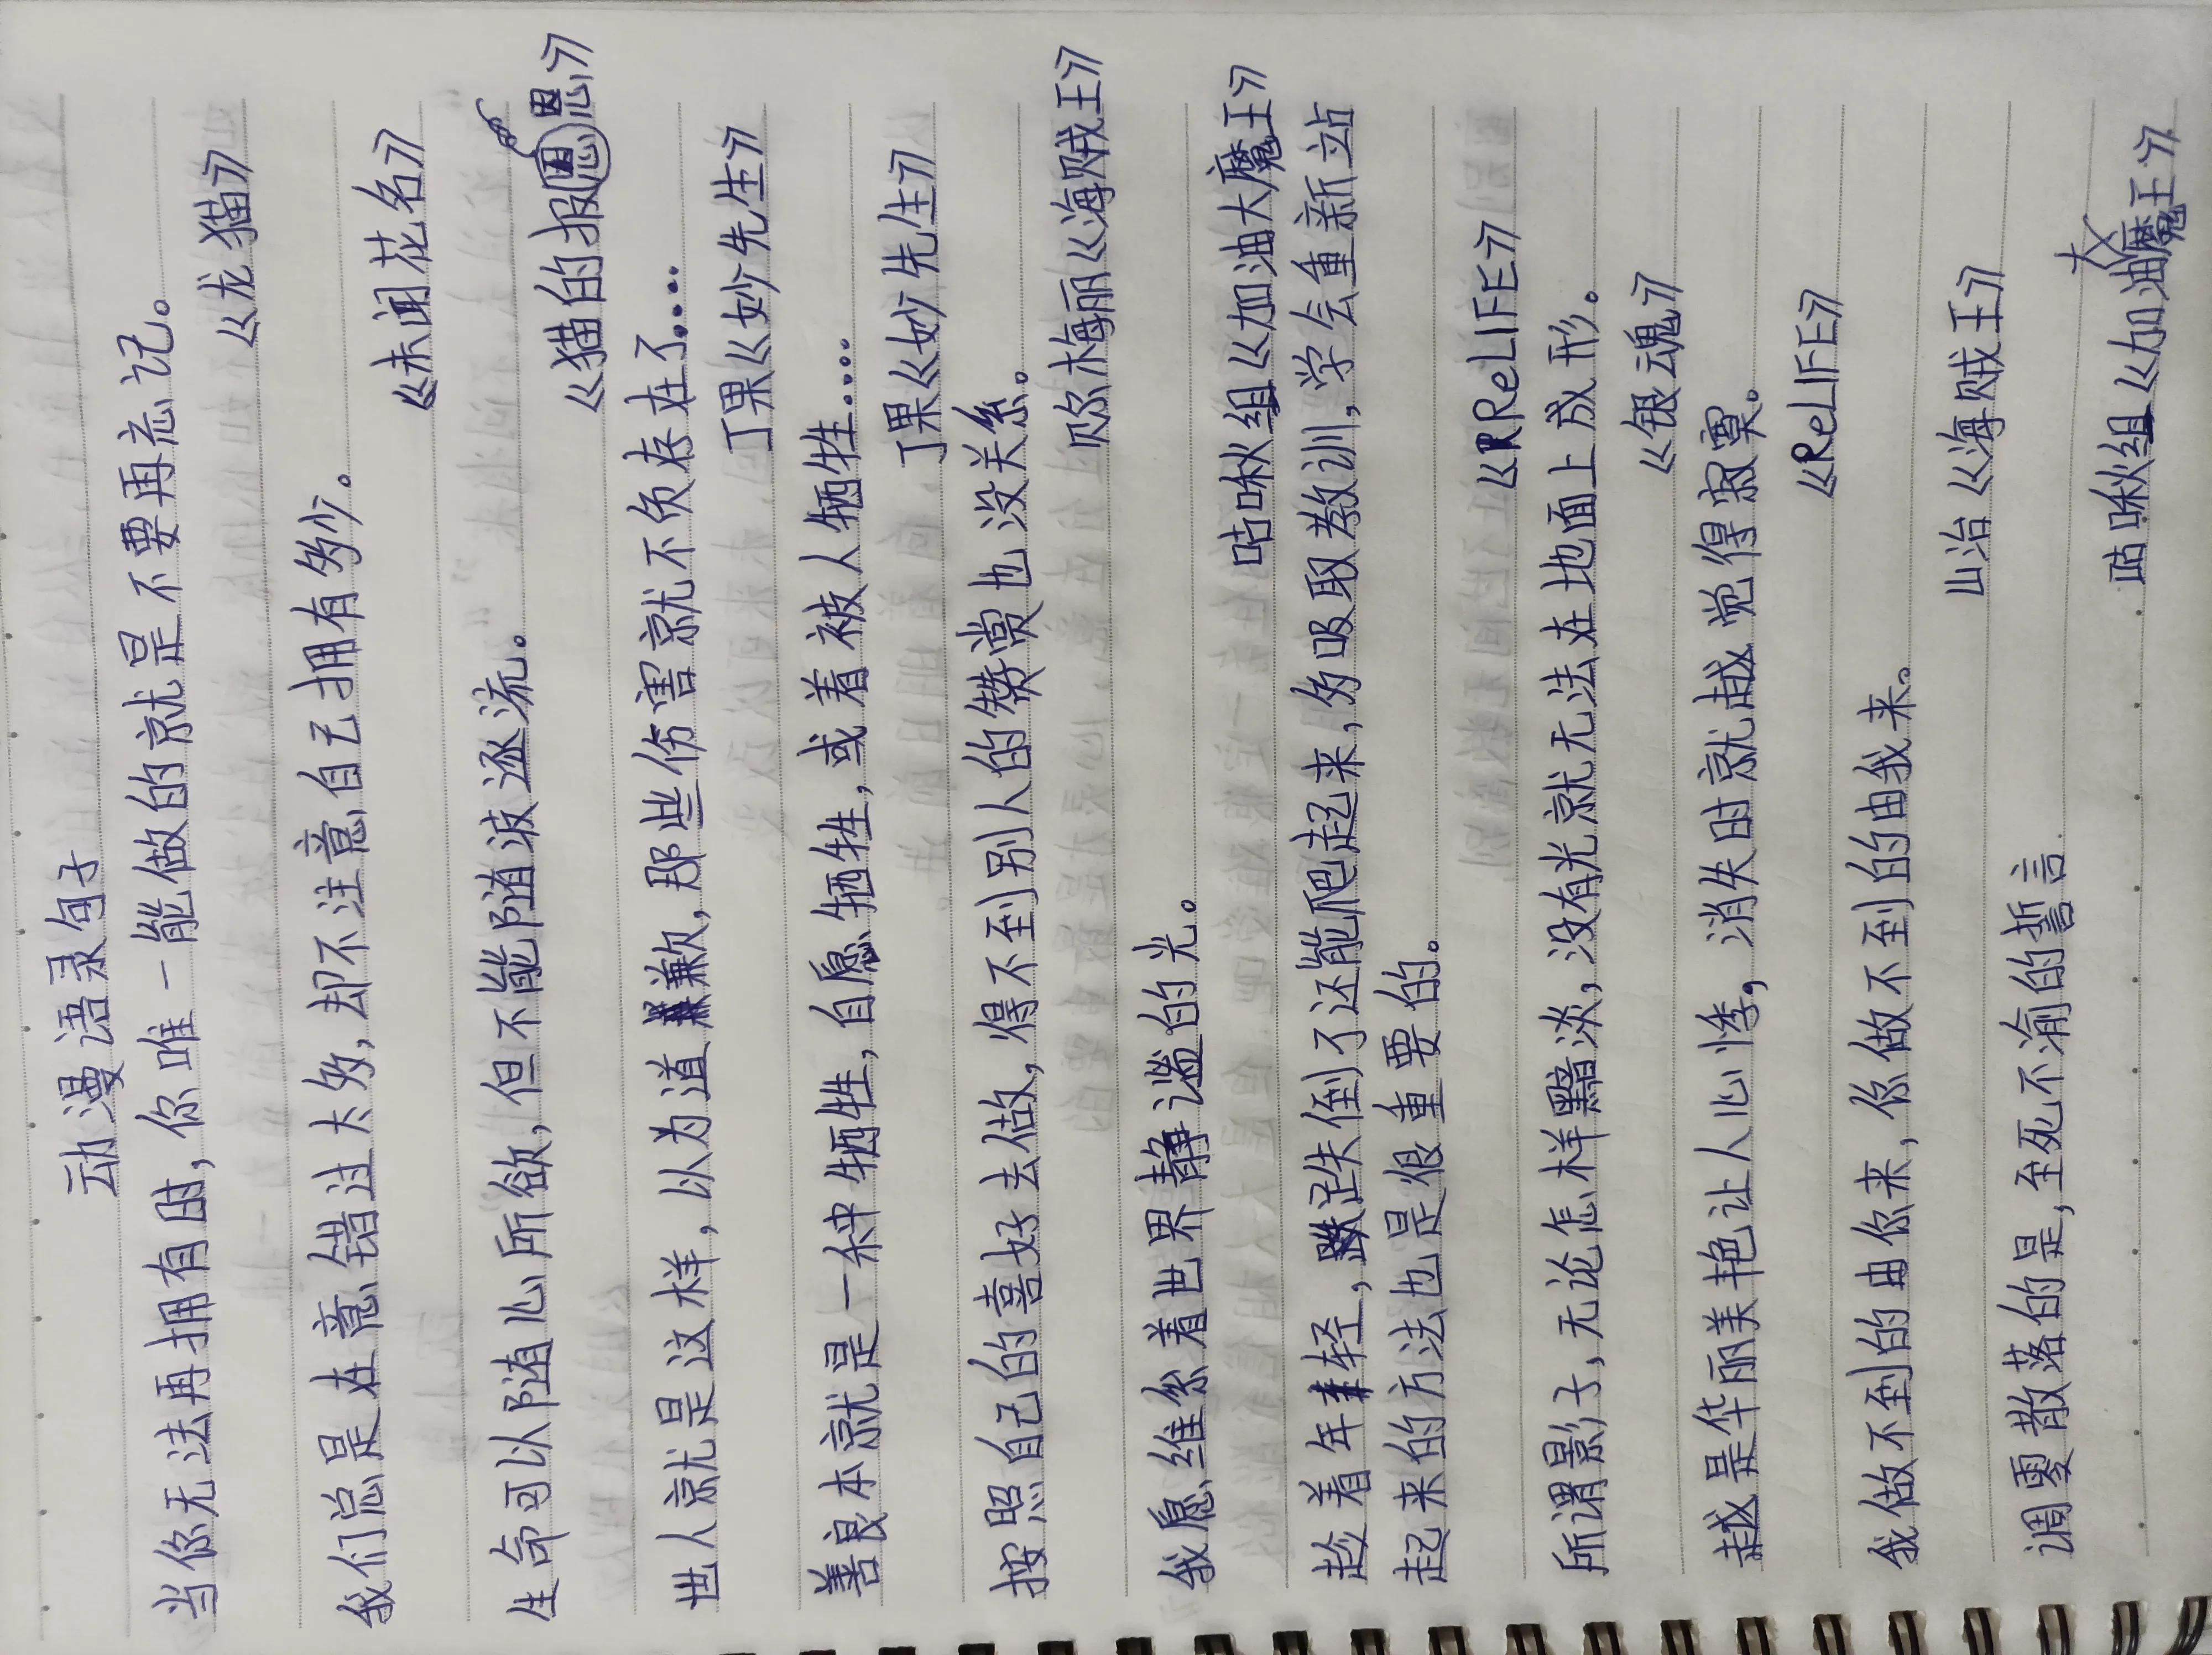 动漫语录句子
当你无法再拥有时，你唯一能做的就是不要再忘记。
《龙猫》
我们总是在意错过太多，却不注意自己拥有多少。
《未闻花名》
生命可以随心所欲，但不能随波逐流。
《猫的报恩》
世人就是这样，以为道歉，那些伤害就不负存在了....
丁果《妙先生》
善良本就是一种牺牲，自愿牺牲，或着被人牺牲....
丁果《妙先生》
按照自己的喜好去做，得不到别人的赞赏也没关系。
贝尔梅丽《海贼王》
我愿维系着世界静谧的光。
咕啾组《加油大魔王》
趁着年轻，跌倒了还能爬起来，多吸取教训，学会重新站
起来的方法也是很重要的。
《ReLIFE》
所谓影子，无论怎样黯淡，没有光就无法在地面上成形。
《银魂》
越是华丽美艳让人心悸，消失时就越觉得寂寞。
《ReLIFE》
我做不到的由你来，你做不到的由我来。
山治《海贼王》
调零散落的是，至死不渝的誓言
咕啾组《加油大魔王》